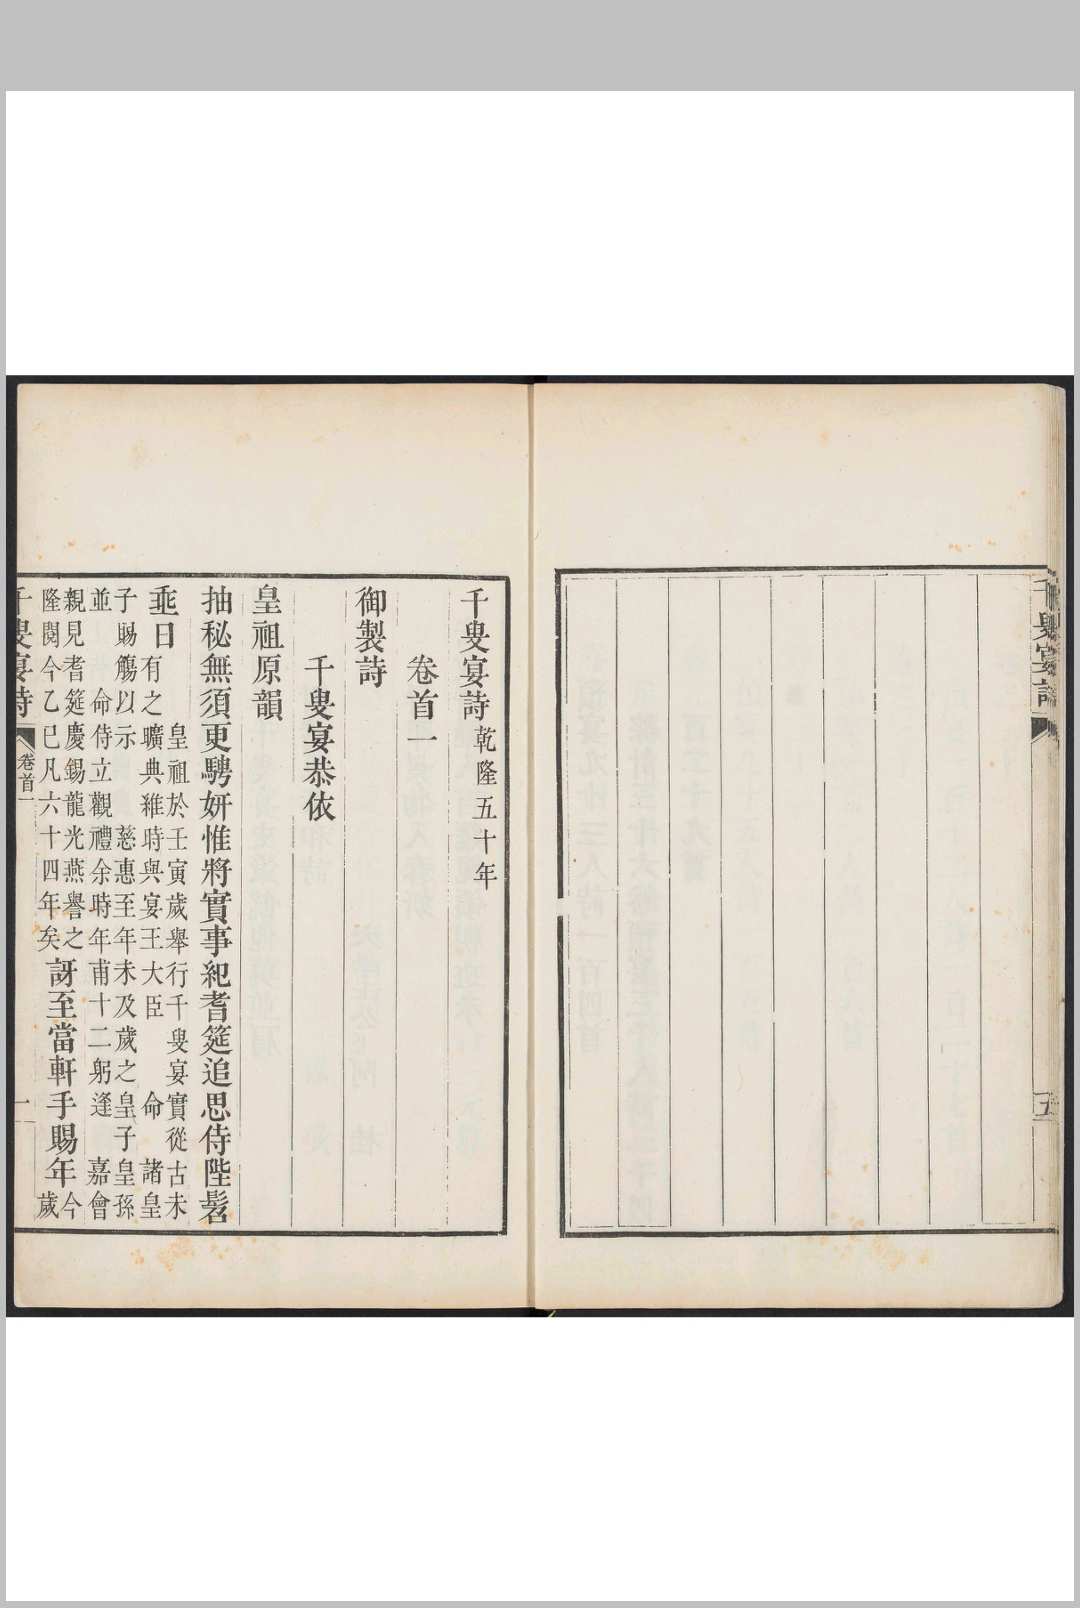 千叟宴詩 五
千叟宴詩 乾隆五十年
卷首一
御製詩
千叟宴恭依
皇祖原韻
抽秘無須更騁妍惟將實事紀耆筵追思侍陛髫
垂日
皇祖於壬寅歲舉行千叟宴實從古未
有之曠典維時與宴王大臣 命 諸皇
子賜觴以示 慈惠至年未及歲之皇子皇孫
並 命侍立觀禮余時年甫十二躬逢 嘉會
親見耆筵慶錫龍光燕譽之
隆閱今乙巳凡六十四年矣
訝至當軒手賜年
今
歲
千叟宴詩 卷首一 一